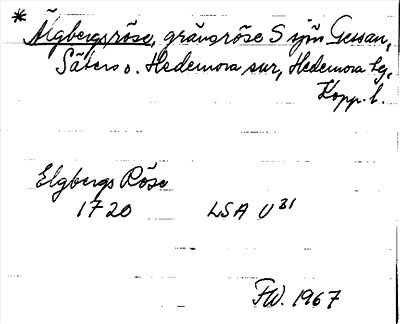 * Älgbergsröse, gränsröse S sjön Gessan,
Säters o. Hedemora snr, Hedemora lg,
Kopp. l.
Elgbergs Röse
1720 LSA U 31
FW. 1967